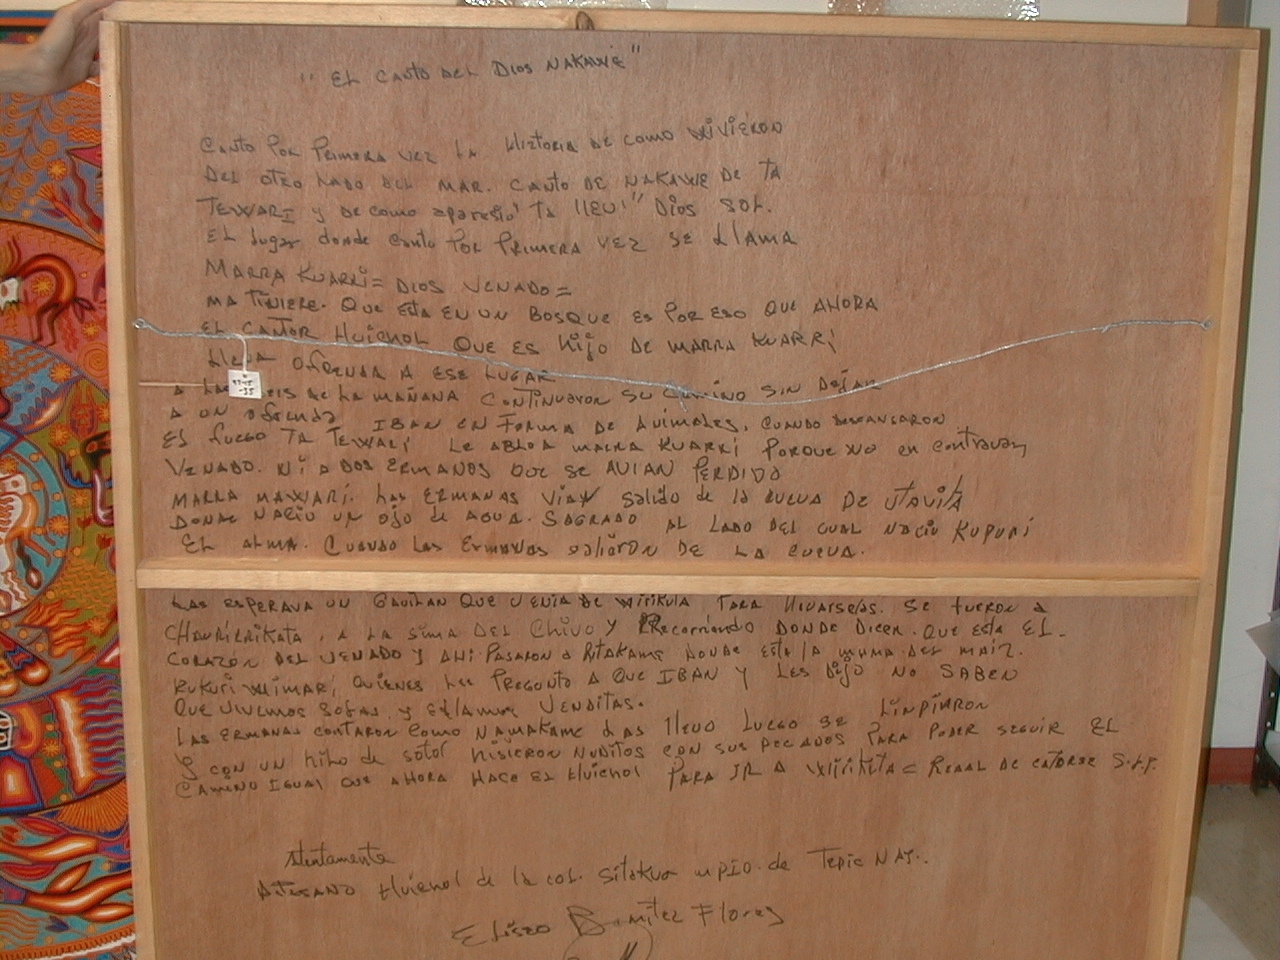 "EL CANTO DEL DIOS NAKAWE"
CANTO POR PRIMERA VEZ LA HIZTORIA DE COMO VIVIERON
DEL OTRO LADO DEL MAR. CANTO DE NAKAWE DE TA
TEWARI Y DE COMO aparesio' TA llEU'" DIOS SOL.
EL lugar donde canto POR PRIMERA VEZ SE LlAMA
MARRA KUARRI = DIOS VENADO =
MA TINIERE. QUE ESTA EN UN BOSQUE ES POR ESO QUE AHORA
EL CANTOR HUICHOL QUE ES hijo DE MARRA KUARRI
LLEVA OFRENDA A ESE LUGAR
A LAS DE LA MAÑANA CONTINUARON SU CAMINO SIN DEJAR
A UN ofrenda IBAN EN FORMA DE ANIMALES, CUANDO DESCANSARON
EL fuego TA TEWARI LE ABLO A MARRA KUARRI PORQUE NO en contravan
VENADO. NI A DOS ERMANOS QUE SE AVIAN PERDIDO
MARRA MAWARI. LAS ERMANAS VIAN salido de la cueva DE UTAVITA
DONDE NACIO UN OJO de AGUA. SAGRADO AL LADO DEL CUAL NACIO KUPURI
EL ALMA. CUANDO LAS ERMANAS saliERON DE LA CUEVA.
LAS ESPERAVA UN GAVILAN QUE VENIA DE WIRIKUTA PARA llevarselas. SE FUERON A
CHAURIRRIKATA, A LA SIMA DEL Chivo Y Recorriendo DONDE DICEN. QUE ESTA EL.
CORAZON DEL VENADO Y AHI PASARON a RITAKAME DONDE ESTA LA MAMA DEL MAIZ.
KUKURI WIMARI, QUIENES LES PREGUNTO A QUE IBAN Y LES DIJO NO SABEN
QUE VIVEMOS SOLAS. Y ESTAMOS VENDITAS.
LAS ERMANAS CONTARON COMO NAMAKAME LAS llEVO LUEGO SE LIMPIARON
Y CON UN hiho de sotol hISIERON NUDITOS CON SUS PECADOS PARA PODER SEGUIR EL
CAMINO IGUAL QUE AHORA HACE EL HUICHOL PARA IR A WIRIKUTA = REAAL DE CATORSE S.L.P.
Atentamente
ARTESANO HUICHOL de la col. Sitakua MPIO. de TEPIC NAY..
Eliseo Benitez Flores